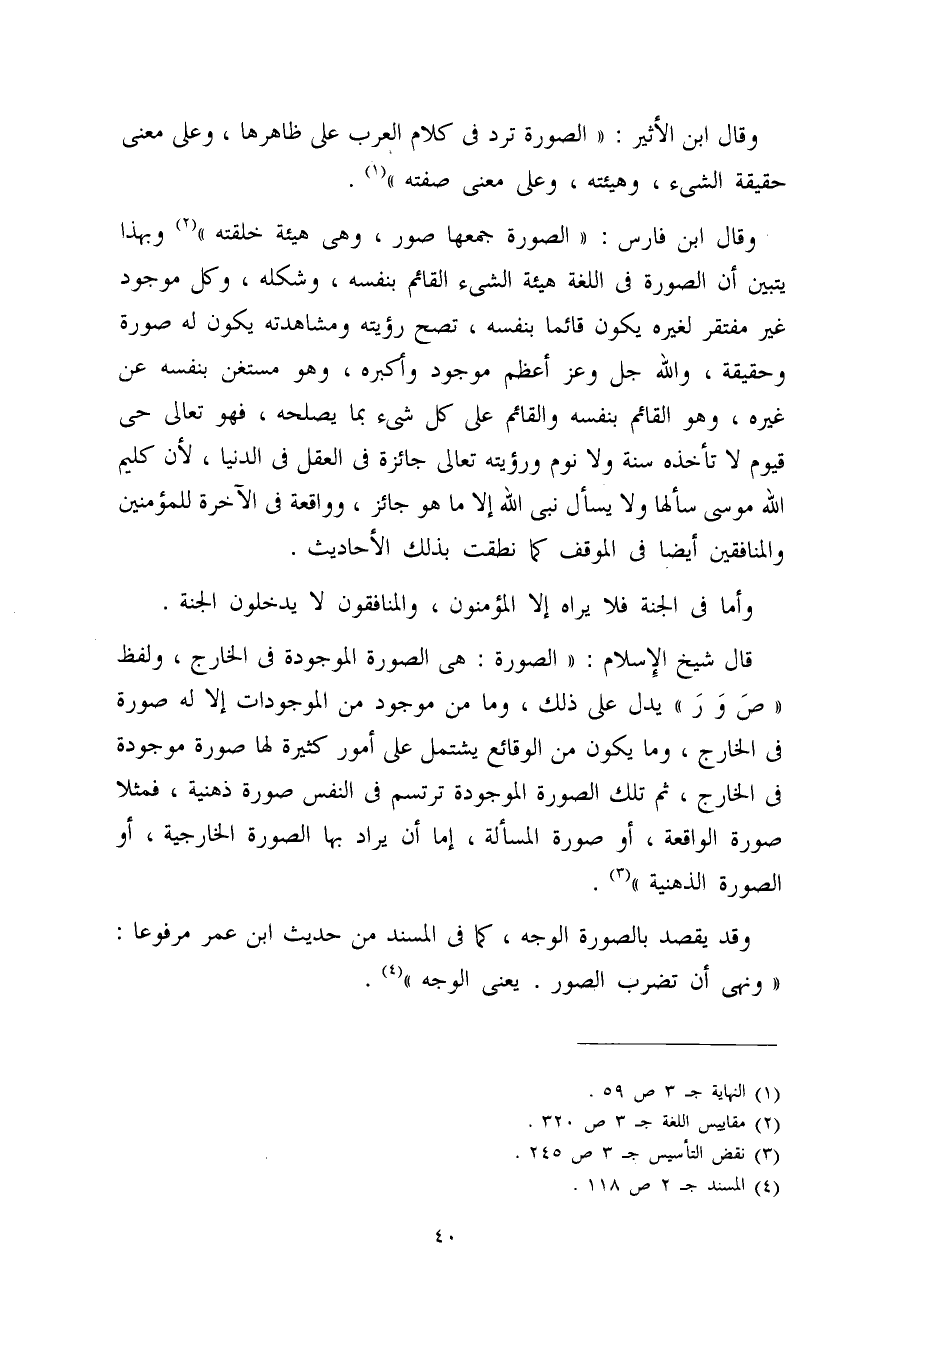 وقال ابن الأثير : « الصورة ترد فى كلام العرب على ظاهرها ، وعلى معنى
حقيقة الشىء ، وهيئته ، وعلى معنى صفته »(١) .
وقال ابن فارس : « الصورة جمعها صور ، وهى هيئة خلقته »(٢) وبهذا
يتبين أن الصورة فى اللغة هيئة الشىء القائم بنفسه ، وشكله ، وكل موجود
غير مفتقر لغيره يكون قائما بنفسه ، تصح رؤيته ومشاهدته يكون له صورة
وحقيقة ، والله جل وعز أعظم موجود وأكبره ، وهو مستغن بنفسه عن
غيره ، وهو القائم بنفسه والقائم على كل شىء بما يصلحه ، فهو تعالى حى
قيوم لا تأخذه سنة ولا نوم ورؤيته تعالى جائزة فى العقل فى الدنيا ، لأن كليم
الله موسى سألها ولا يسأل نبى الله إلا ما هو جائز ، وواقعة فى الآخرة للمؤمنين
والمنافقين أيضا فى الموقف كما نطقت بذلك الأحاديث .
وأما فى الجنة فلا يراه إلا المؤمنون ، والمنافقون لا يدخلون الجنة .
قال شيخ الإسلام : « الصورة : هى الصورة الموجودة فى الخارج ، ولفظ
« صَ وَ رَ » يدل على ذلك ، وما من موجود من الموجودات إلا له صورة
فى الخارج ، وما يكون من الوقائع يشتمل على أمور كثيرة لها صورة موجودة
فى الخارج ، ثم تلك الصورة الموجودة ترتسم فى النفس صورة ذهنية ، فمثلا
صورة الواقعة ، أو صورة المسألة ، إما أن يراد بها الصورة الخارجية ، أو
الصورة الذهنية »(٣) .
وقد يقصد بالصورة الوجه ، كما فى المسند من حديث ابن عمر مرفوعا :
« ونهى أن تضرب الصور . يعنى الوجه »(٤) .
(١) النهاية جـ ٣ ص ٥٩ .
(٢) مقاييس اللغة جـ ٣ ص ٣٢٠ .
(٣) نقض التأسيس جـ ٣ ص ٢٤٥ .
(٤) المسند جـ ٢ ص ١١٨ .
٤٠